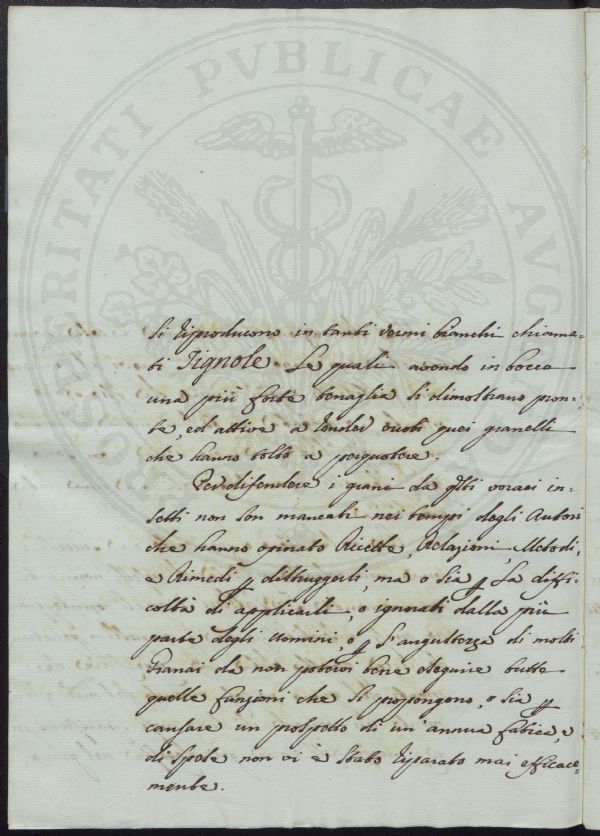 PROSPERITATI PVBLICAE AVGENDAE
si riproducono in tanti vermi bianchi chiama-
ti Tignole. Le quali avendo in bocca
una più forte tenaglia si dimostrano pron-
te, ed attive a render vuoti quei granelli
che hanno tolto a perquotere.
Per difendere i grani da qsti voraci in-
setti non son mancati nei tempi degli Autori
che hanno opinato Ricette, Relazioni, Metodi,
e Rimedi p distruggerli, ma o sia p la diffi-
coltà di applicarli, o ignorati dalla più
parte degli Uomini, o p l'angustezza di molti
Granai da non potervi bene eseguire tutte
quelle funzioni che si propongono, o sia p
causare un prospetto di un' annua fatica, e
di spese non vi è stato riparato mai efficace-
mente.